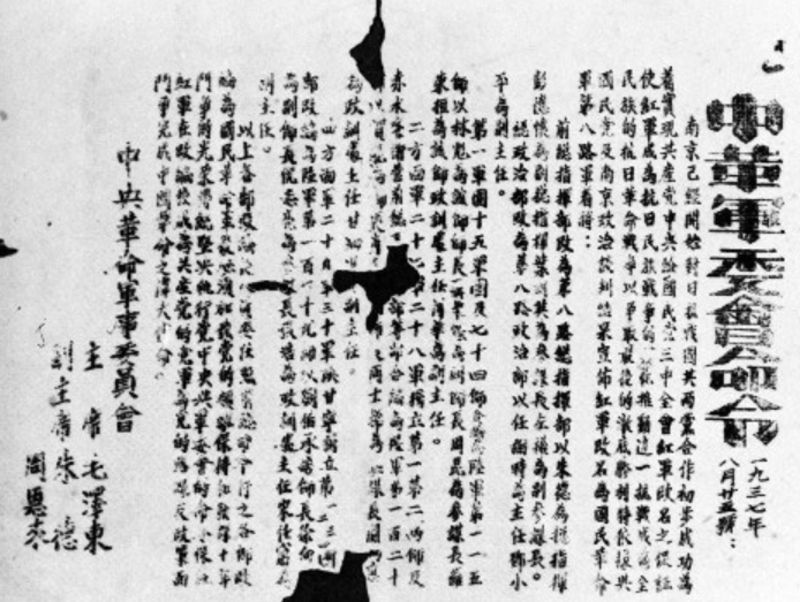 中央軍委會命令
一九三七年
八月廿五號：
南京已經開始對日抗戰國共兩黨合作初步成功為
着實現共產黨中央給國民黨三中全會紅軍改名之保証
使紅軍成為抗日民族戰爭的
推動這一抗戰成為全
民族的抗日革命戰爭以爭取最後的澈底勝利特依據與
國民黨及南京政治談判結果宣佈紅軍改名為國民革命
軍第八路軍着將：
前總指揮部改為第八路總指揮部以朱德為總指揮
彭德懷為副總指揮葉劍英為參謀長左權為副參謀長。
總政治部改為第八路政治部以任弼時為主任鄧小
平為副主任。
第一軍團十五軍團及七十四師合編為陸軍第一一五
師以林彪為該師師長聶榮臻為副師長周昆為參謀長羅
榮桓為該師政訓處主任蕭華為副主任。
二方面軍二十七軍二十八軍獨立第一第二兩師及
赤水警衛營前總
部等部合編為陸軍第一百二十
師以賀
為參謀長關向應
為政訓處主任甘泗淇
副主任。
四方面軍二十九軍三十軍陝甘寧獨立第一二三四團
等部改編為陸軍第一百二十九師以劉伯承為師長徐向前
為副師長倪志亮為參謀長張浩為政訓處主任宋任窮為
副主任。
以上各部改編後
之各部改
編為國民革命軍
黨的領導保持和發揚十年
鬥爭的光榮傳統堅決執行黨中央與軍委會的命令保証
紅軍在改編後成為共產黨的黨軍為黨的路線及政策而
鬥爭完成中國革命之偉大使命。
中央革命軍事委員會
主席毛澤東
副主席朱德
周恩來